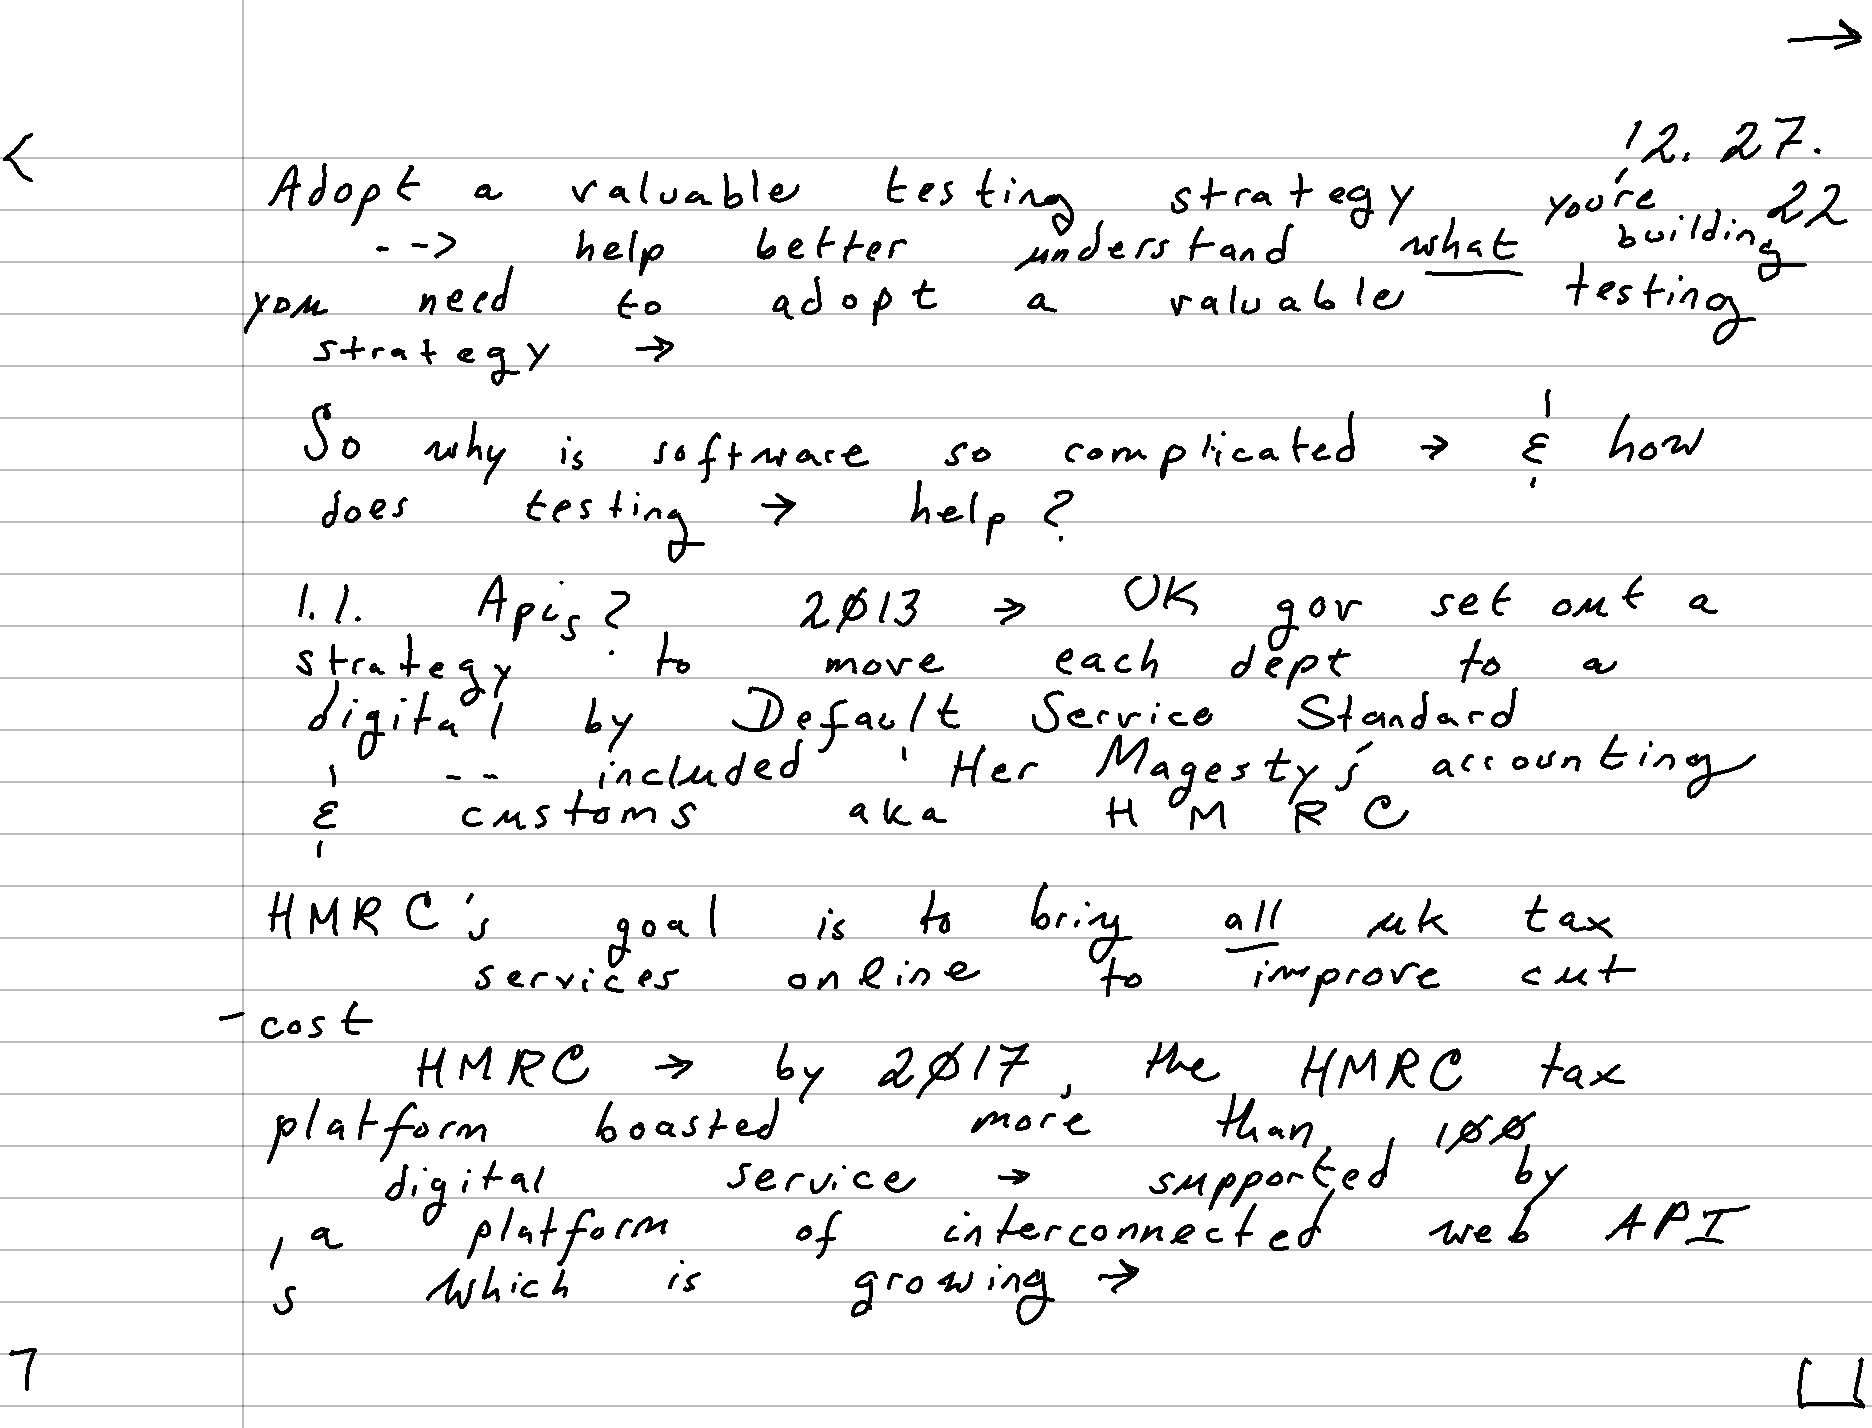 →
12. 27.
Adopt a valuable testing strategy you're 22
--> help better understand what building
you need to adopt a valuable testing
strategy →
So why is software so complicated → & how
does testing → help?
1.1. Apis? 2013 → UK gov set out a
strategy to move each dept to a
digital by Default Service Standard
-- included 'Her Magesty's accounting
& customs aka HMRC
HMRC's goal is to bring all uk tax
services online to improve cut
- cost
HMRC → by 2017, the HMRC tax
platform boasted more than 100
digital service → supported by
a platform of interconnected web API
's which is growing →